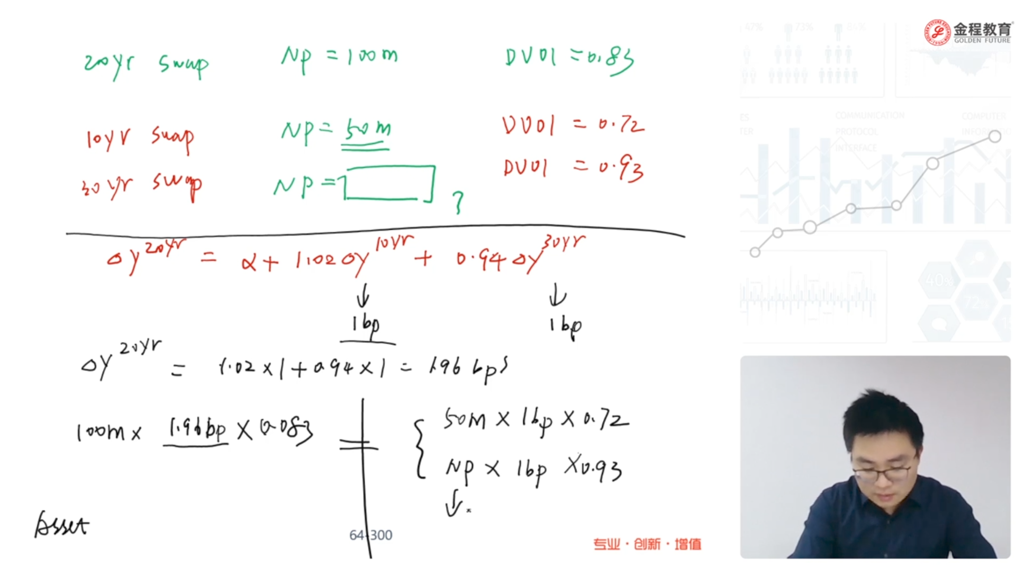 金程教育
GOLDEN FUTURE
20yr swap NP = 100m DV01 = 0.83
10yr swap NP = 50m DV01 = 0.72
30yr swap NP = ? DV01 = 0.93
Δy^20yr = α + 1.02Δy^10yr + 0.94Δy^30yr
↓ ↓
1bp 1bp
Δy^20yr = 1.02×1+0.94×1 = 1.96 bps
100m× 1.96bp × 0.083
50M × 1bp × 0.72
NP × 1bp ×0.93
↓
Asset
64-300
专业·创新·增值
COMMUNICATION
PROTOCOL
INTERFACE